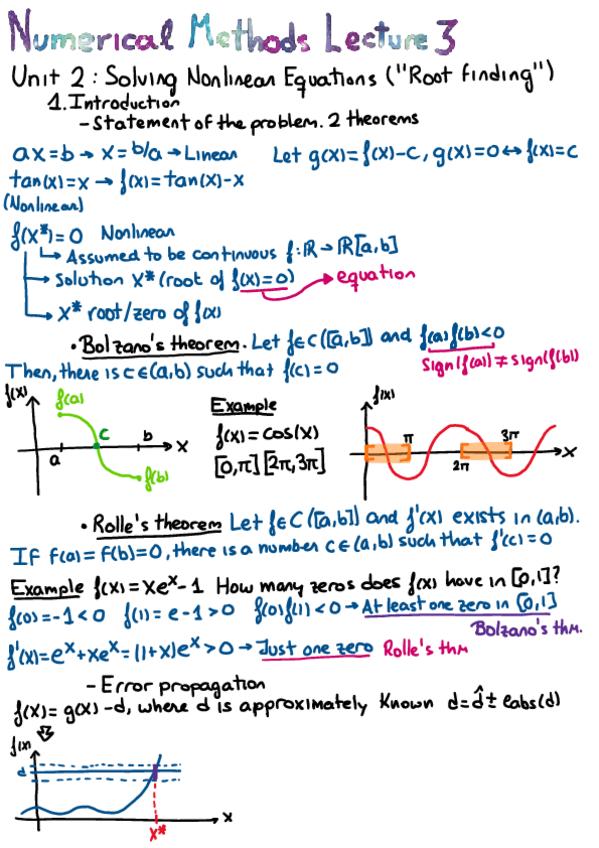 Numerical Methods Lecture 3
Unit 2: Solving Nonlinear Equations ("Root finding")
1. Introduction
- Statement of the problem. 2 theorems
ax=b → x=b/a → Linear Let g(x)=f(x)-c, g(x)=0 ↔ f(x)=c
tan(x)=x → f(x)=tan(x)-x
(Nonlinear)
f(x*)=0 Nonlinear
↳ Assumed to be continuous f:ℝ→ℝ[a,b]
→ Solution x* (root of f(x)=0) → equation
↳ x* root/zero of f(x)
• Bolzano's theorem. Let f∈C([a,b]) and f(a)f(b)<0
Then, there is c∈(a,b) such that f(c)=0 Sign(f(a))≠sign(f(b))
f(x) f(a) c a b x f(b)
Example
f(x)=cos(x)
[0,π] [2π,3π]
f(x) π 2π 3π x
• Rolle's theorem Let f∈C([a,b]) and f'(x) exists in (a,b).
If f(a)=f(b)=0, there is a number c∈(a,b) such that f'(c)=0
Example f(x)=xeˣ-1 How many zeros does f(x) have in [0,1]?
f(0)=-1<0 f(1)=e-1>0 f(0)f(1)<0 → At least one zero in [0,1]
Bolzano's thm.
f'(x)=eˣ+xeˣ=(1+x)eˣ>0 → Just one zero Rolle's thm
- Error propagation
f(x)=g(x)-d, where d is approximately known d=d̂±eabs(d)
f(x)
d
x
x*